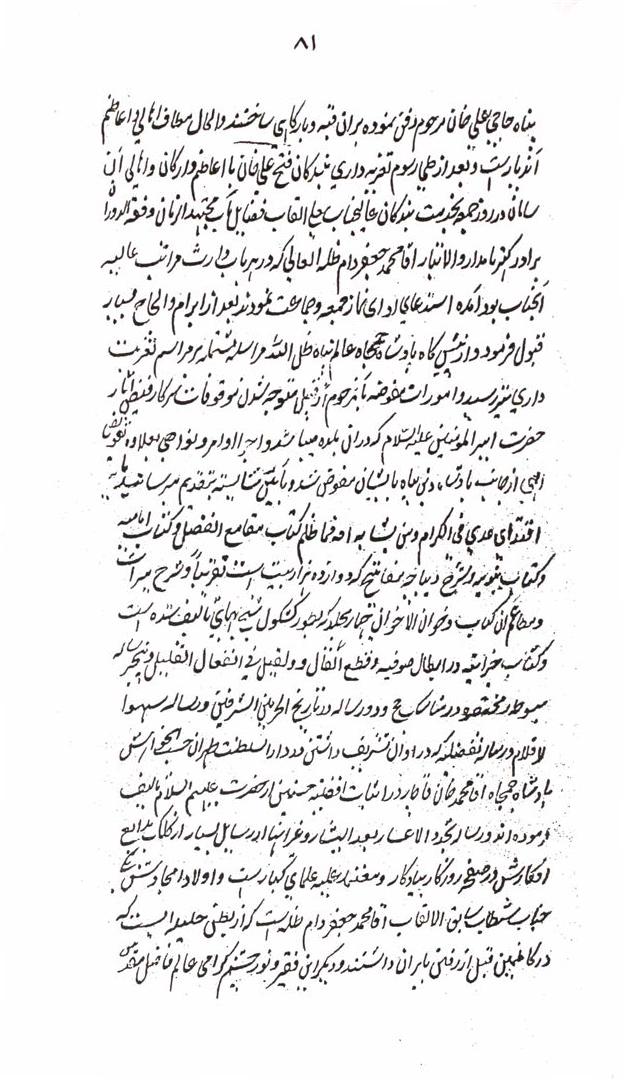 ۸۱
پناه حاجی علی خان مرحوم دفن نموده بران قبه و بارکاهی ساختند والحال مطاف اهالی و اعاظم
آندیارست و بعد از طی رسوم تعزیه داری بندکان فتح علی خان با اعاظم و ارکان و اهالی آن
سامان در روز جمعه بخدمت بندکان عالیجناب جلی القاب فضایل مآب مجتهد الزمان وفقیه الدوران
برادر کبیر نامدار والاتبار اقا محمد جعفر دام ظله العالی که در هر باب وارث مراتب عالیه
آنجناب بود آمده استدعای ادای نماز جمعه و جماعت نمودند بعد از ابرام و الحاح بسیار
قبول فرمود و از پیش کاه پادشاه جمجاه عالم پناه ظل الله مراسله مشتمله بر مراسم تعزیت
داری نیز رسید و امورات مفوضه بآنمرحوم از قبیل متوجه شدن موقوفات سرکار فیض آثار
حضرت امیر المومنین علیه السلام که دران بلده میباشد و اجرا اوامر و نواهی بعلاوه تفویض
الهی از جانب پادشاه دین پناه بایشان مفوض شد و بآیین شایسته بتقدیم میرسانید بابه
اقتدای عدی فی الکرام ومن یشابه ابه فما ظلم کتاب مقامع الفضل و کتاب امامیه
و کتاب نبویه و شرح دیباجه مفاتیح که دوازده هزار بیت است تقریبا و شرح میراث
و مطاعم آن کتاب و خوان الاخوان چهار جلد که بطور کشکول شیخ بهای تالیف شده است
و کتاب خیراتیه در ابطال صوفیه و قطع القال والقیل فی انفعال القلیل و پنجرساله
مبسوط و مختصر در مناسک حج و دو رساله در تاریخ الحرمین الشریفین و رساله سهوا
لاقلام و رساله تفضیلیه که در اوان تشریف داشتن در دار السلطنت طهران حسب الخواهش
پادشاه جمجاه اقا محمد خان قاجار در اثبات افضلیه حسنین از حضرت علیهم السلام تالیف
فرموده اند و رساله تحدید الاعسار بعد الیسار و غیر اینها از رسایل بسیار از کلک بدایع
افکارش در صفحه روزکار بیادکار و مفتی به علیه علمای کبارست و اولاد امجادش یکی
جناب مستطاب سابق الالقاب اقا محمد جعفر دام ظله است که از بطن حلیله ایست که
در کاظمین قبل از رفتن بایران داشتند و دیکر این فقیر و نور چشم کرامی عالم فاضل مقدس